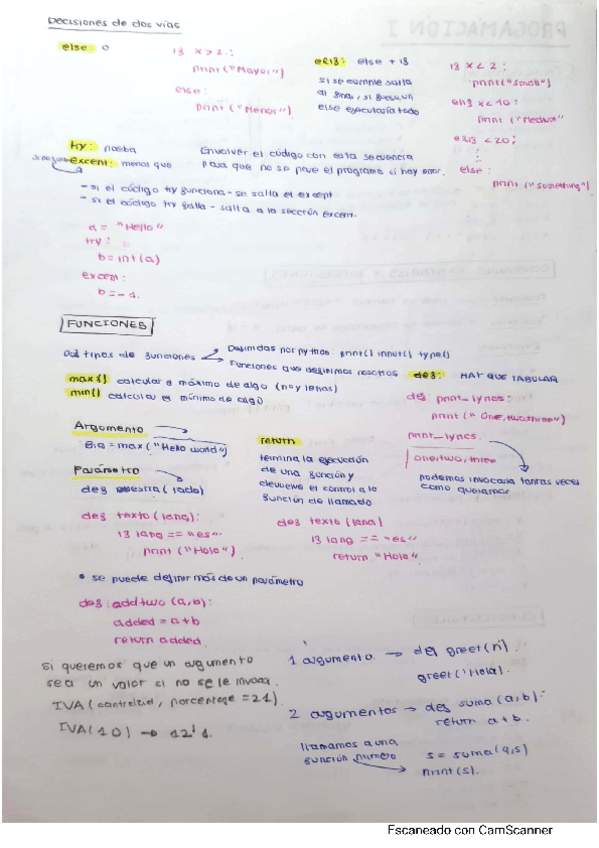 Decisiones de dos vías
else: o
if x>2.:
print("Mayor")
else:
print ("Menor")
elif: else + if
si se cumple salta
al final, si
else ejecutaría todo
if x < 2 :
print("small")
elif x<10:
print ("Medium")
elif <20;
:
else :
print ("Something")
try: prueba
except: menos que
Envolver el código con esta secuencia
para que no se pare el programa si hay error.
- si el código try funciona - se salta el except
- si el código try falla - salta a la sección except.
a = "Hello"
try:
b=int(a)
except:
b=-1.
FUNCIONES
Dos tipos de funciones
Definidas por python print() input() type()
Funciones que definimos nosotros
def: HAY QUE TABULAR
max() calcular el máximo de algo
min() calcular el mínimo de algo
def print_lyrics:
print (" One, two three")
print_lyrics.
one, two, three
podemos invocarla tantas veces
como queramos
Argumento
Big = max("Hello world")
Parámetro
def muestra (lado)
return
termina la ejecución
de una función y
devuelve el control a la
función de llamado
def texto (lang):
if lang == "es"
print ("Hola")
def texto (lang)
if lang == "es"
return "Hola"
• se puede definir más de un parámetro
def addtwo (a,b):
added = a+b
return added
Si queremos que un argumento
sea un valor si no se le invoca.
IVA (cantidad, porcentaje =21).
IVA(10) → 12'1.
1 argumento. → def greet(n).
greet('Hola).
2 argumentos → def suma (a,b):
return a+b.
llamamos a una
función numero
s = suma(4,5)
print(s).
Escaneado con CamScanner